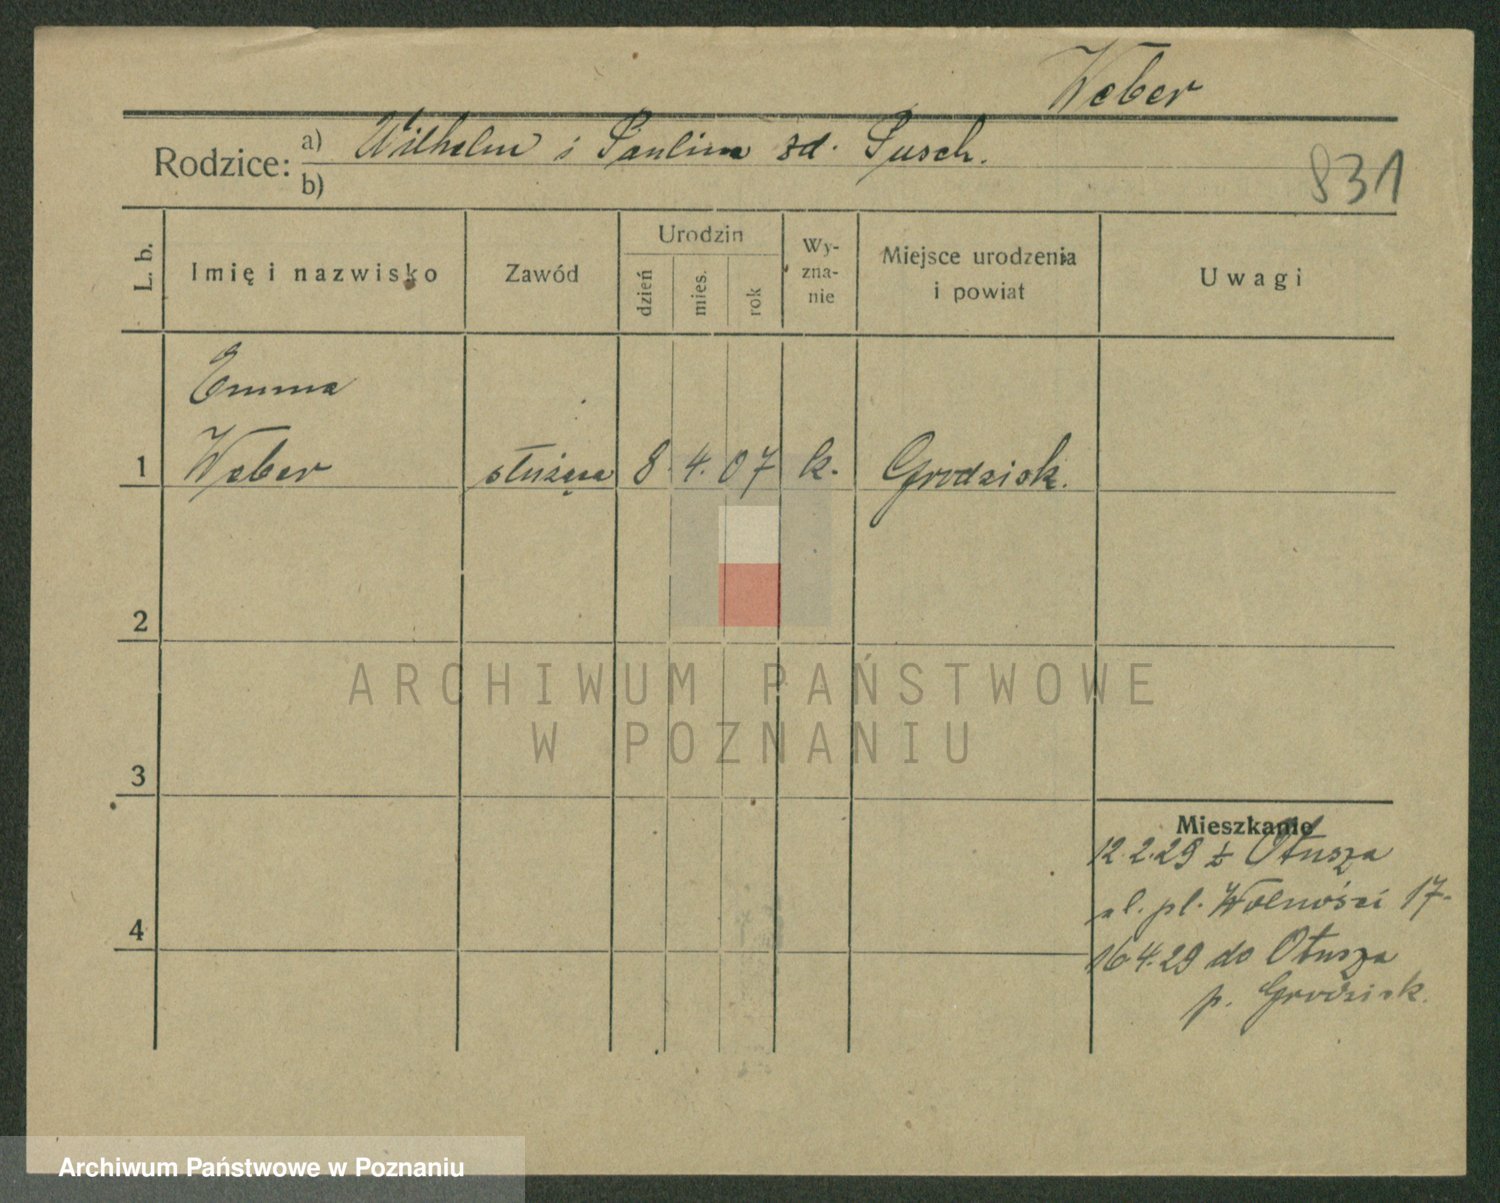 Weber
Rodzice: a) Wilhelm i Paulina zd. Pusch.
b)
831
L. b.
Imię i nazwisko
Zawód
Urodzin
dzień
mies.
rok
Wy-
zna-
nie
Miejsce urodzenia
i powiat
Uwagi
Emma
1 Weber służąca 8. 4. 07 k. Grodzisk.
2
3
4
Mieszkanie
12.2.29 z Otusza
pl. Wolności 17.
16.4.29 do Otusza
p. Grodzisk.
ARCHIWUM PAŃSTWOWE
W POZNANIU
Archiwum Państwowe w Poznaniu